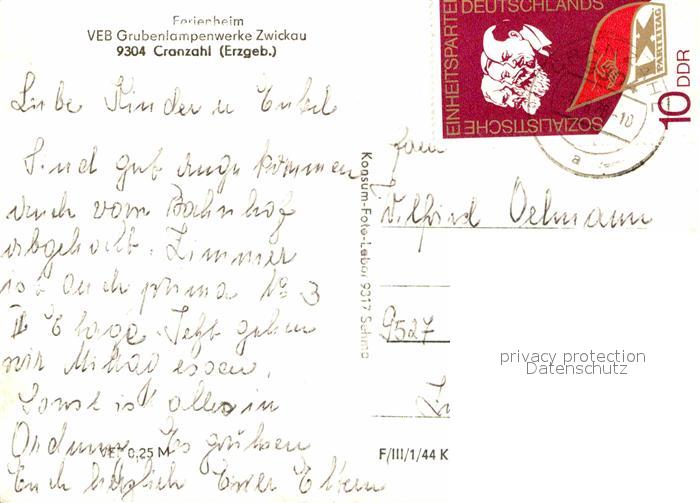 Ferienheim
VEB Grubenlampenwerke Zwickau
9304 Cranzahl (Erzgeb.)
Liebe Kinder u Enkel
Sind gut ange kommen
auch vom Bahnhof
abgeholt. Zimmer
ist auch prima No 3
II Etage. Jetzt gehen
wir Mittag essen.
Sonst ist alles in
Ordnung. Es grüßen
Euch herzlich Eure Eltern
VEP 0,25 M
Konsum-Foto-Labor 9317 Sehma
SOZIALISTISCHE EINHEITSPARTEI DEUTSCHLANDS
IX. PARTEITAG
10 DDR
Fam
Wilfried Oelmann
9527
privacy protection
Datenschutz
F/III/1/44 K